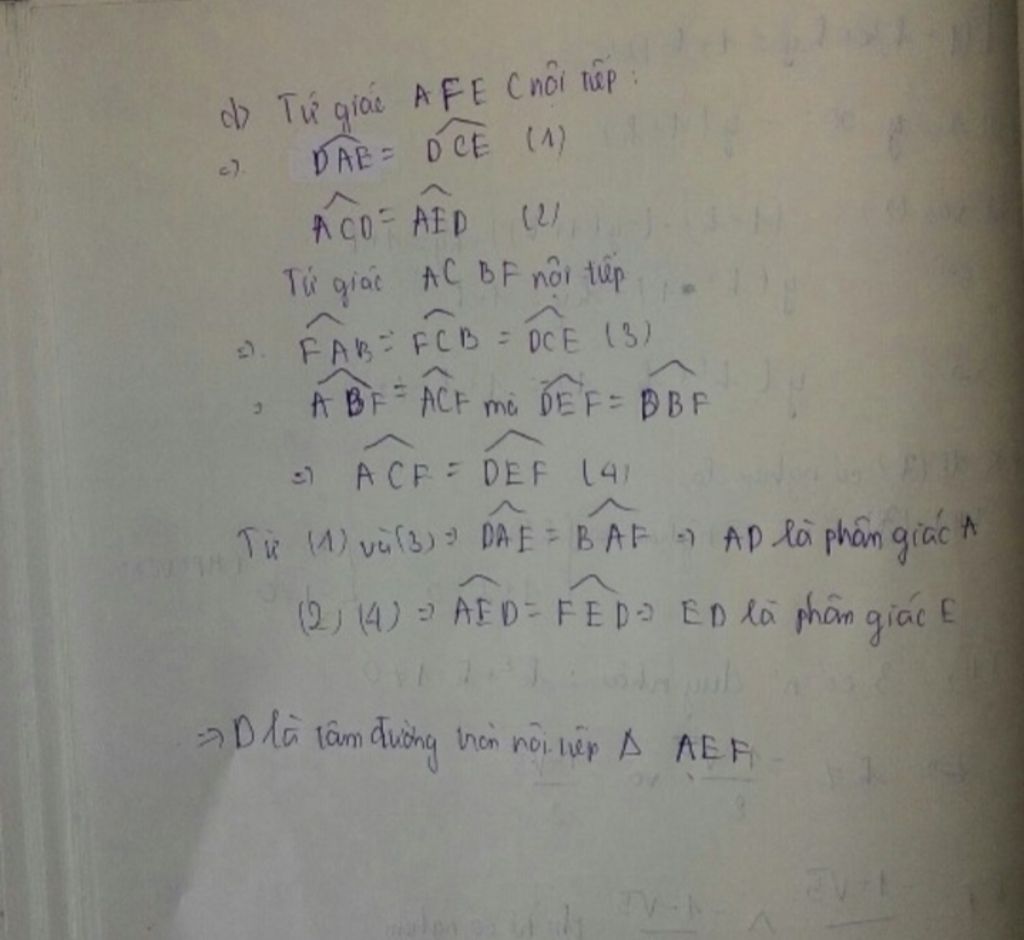 d) Tứ giác AFEC nội tiếp:
=> \widehat{DAE} = \widehat{DCE} (1)
\widehat{ACD} = \widehat{AED} (2)
Tứ giác ACBF nội tiếp
=> \widehat{FAB} = \widehat{FCB} = \widehat{DCE} (3)
, \widehat{ABF} = \widehat{ACF} mà \widehat{DEF} = \widehat{DBF}
=> \widehat{ACF} = \widehat{DEF} (4)
Từ (1) và (3) => \widehat{DAE} = \widehat{BAF} => AD là phân giác A
(2) (4) => \widehat{AED} = \widehat{FED} => ED là phân giác E
=> D là tâm đường tròn nội tiếp Δ AEF